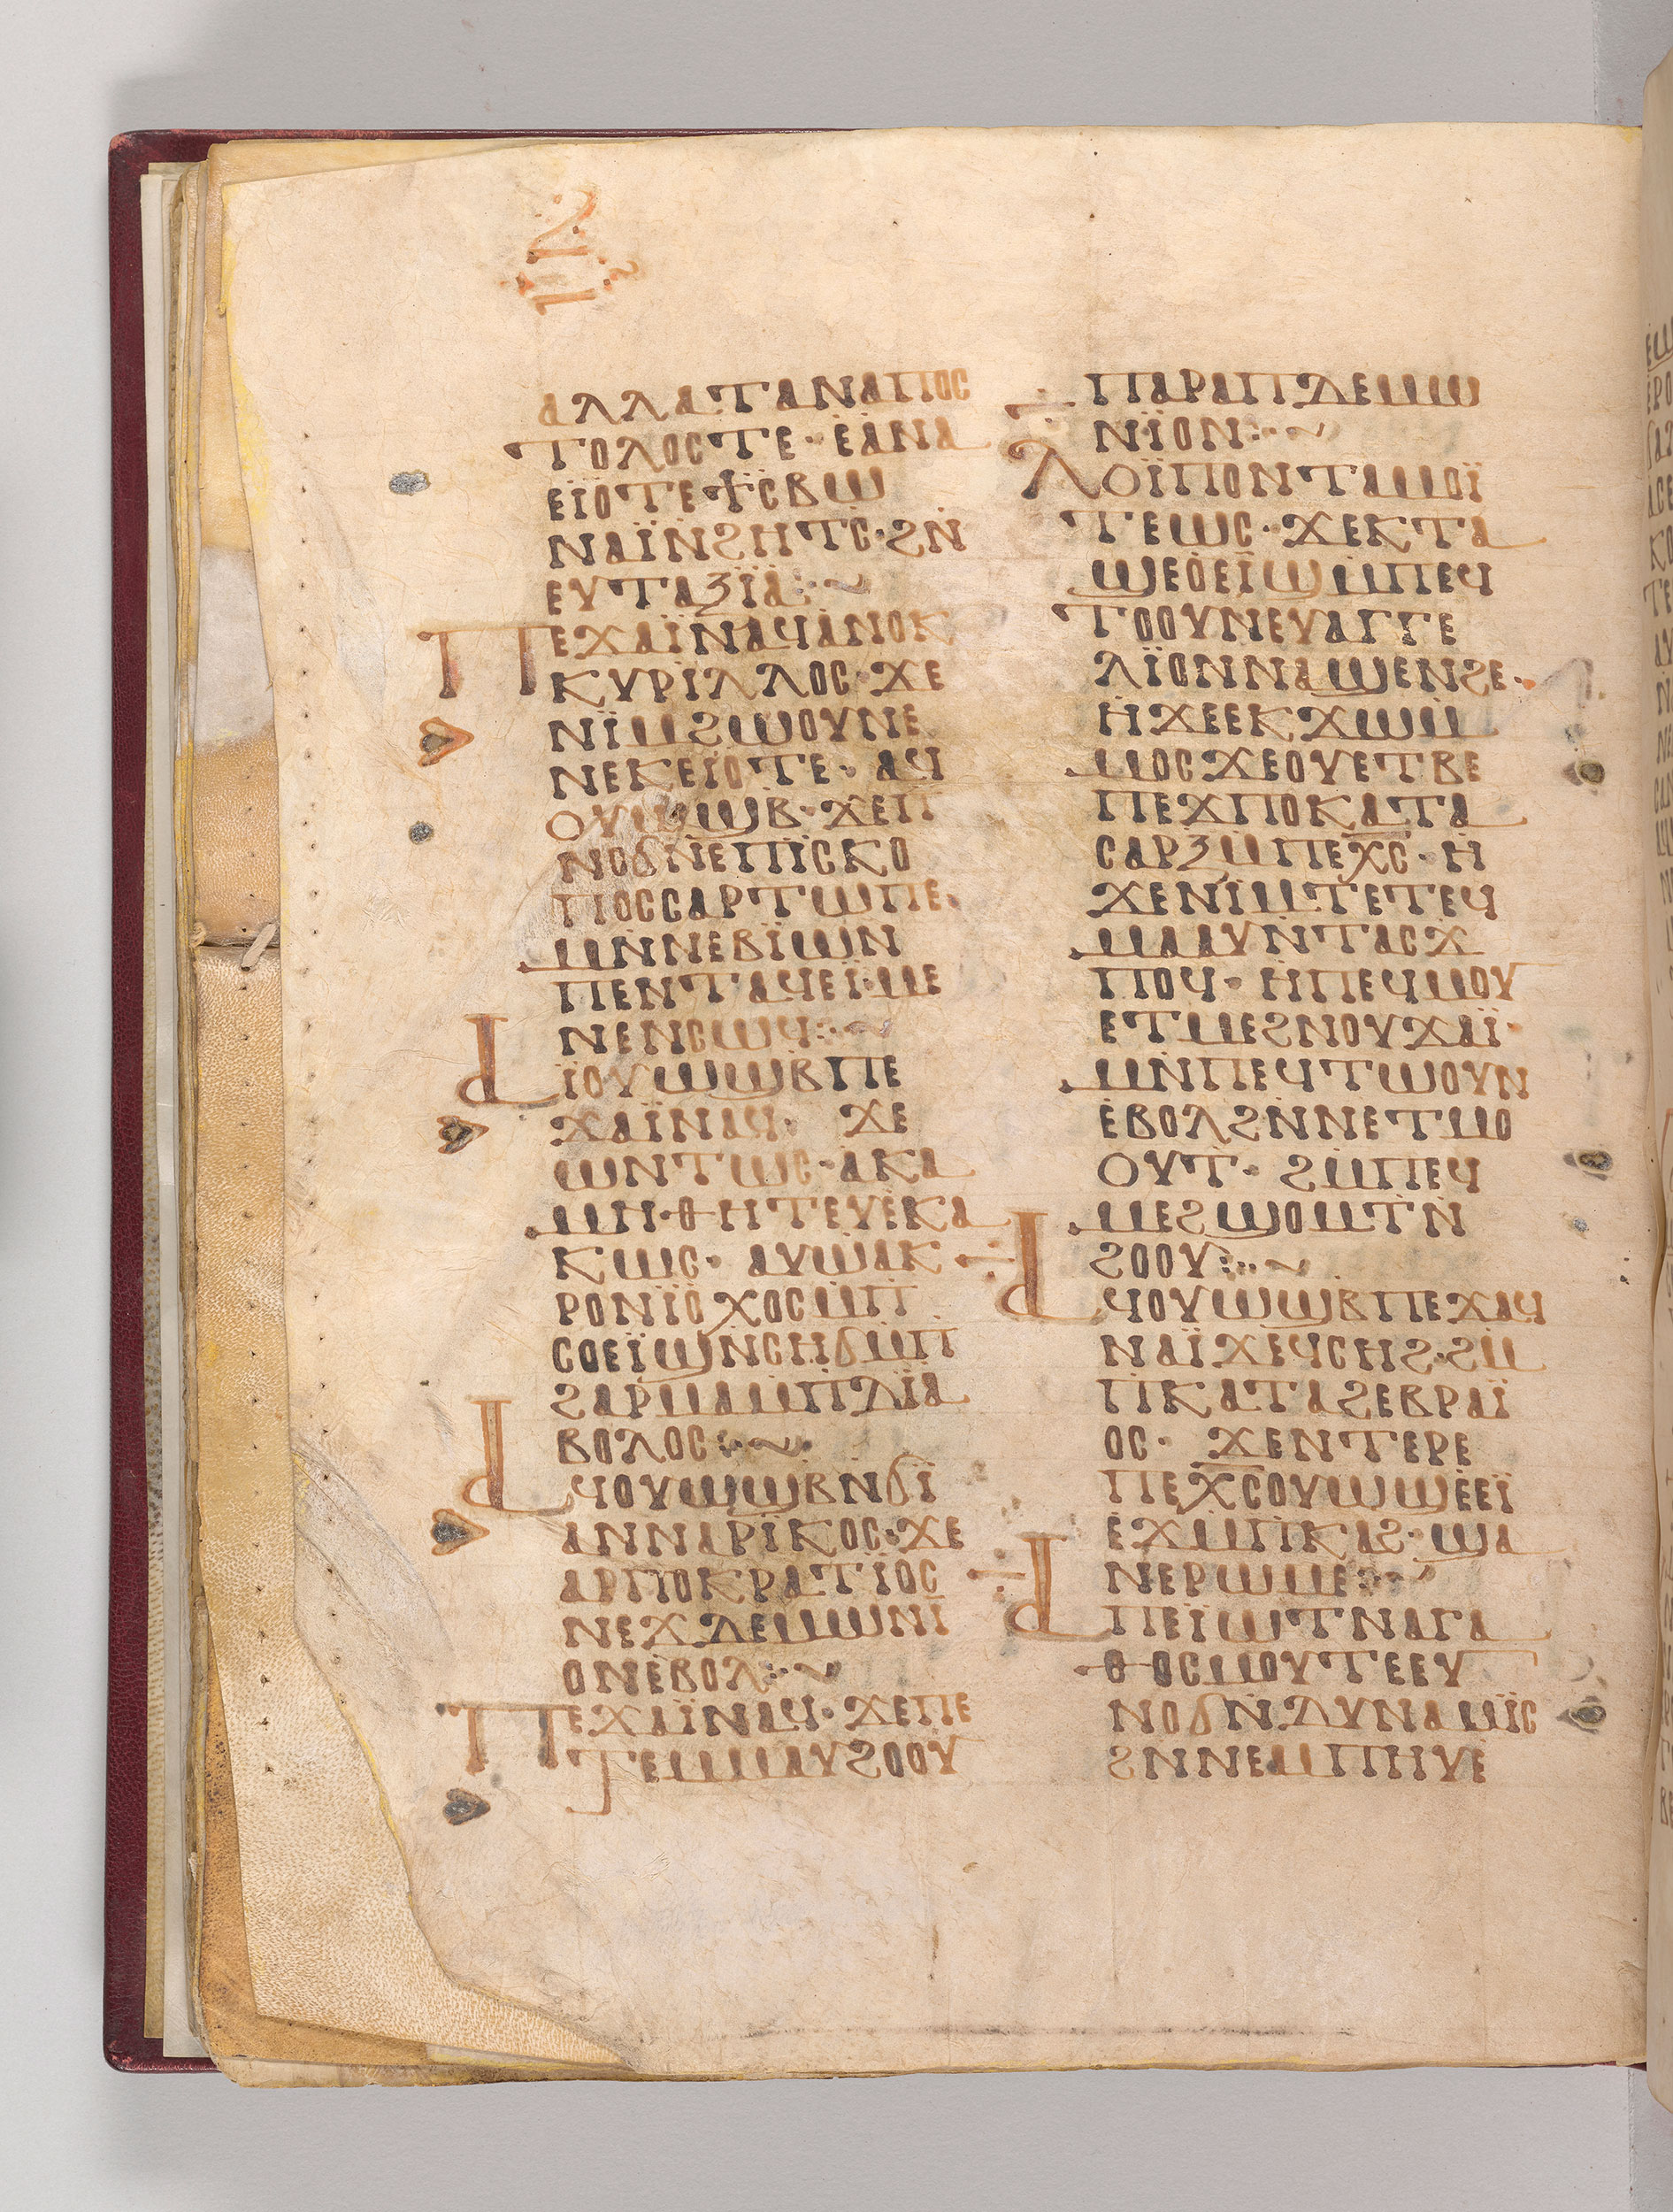 ⲡⲋ
ⲁⲗⲗⲁⲧⲁⲛⲁⲡⲟⲥ
ⲧⲟⲗⲟⲥⲧⲉ· ⲉⲁⲛⲁ
ⲉⲓ̈ⲟⲧⲉϯⲥⲃⲱ
ⲛⲁⲓ̈ⲛ̇ϩⲏⲧⲥ·ϩⲛ̇
ⲉⲩⲧⲁⲝⲓ̈ⲁ:~
ⲡⲉϫⲁⲓ̈ⲛⲁϥⲁⲛⲟⲕ
ⲕⲩⲣⲓⲗⲗⲟⲥ·ϫⲉ
ⲛⲓ̈ⲙϩⲱⲟⲩⲛⲉ
ⲛⲉⲕⲉⲓ̈ⲟⲧⲉ· ⲁϥ
ⲟⲩⲱϣⲃ·ϫⲉⲡ
ⲛⲟϭⲛ̇ⲉⲡⲓ̈ⲥⲕⲟ
ⲡⲟⲥⲥⲁⲣⲧⲱⲡⲉ·
ⲙⲛ̇ⲛⲉⲃⲓ̈ⲱⲛ
ⲡⲉⲛⲧⲁϥⲉⲓ̈·ⲙⲉ
ⲛⲉⲛⲥⲱϥ:~
ⲁⲓ̈ⲟⲩⲱϣⲃⲡⲉ
ϫⲁⲓ̈ⲛⲁϥ· ϫⲉ
ⲱⲛⲧⲱⲥ·ⲁⲕⲁ
ⲙⲛ·ⲑⲏⲧⲉⲩⲉⲕⲁ
ⲕⲱⲥ· ⲁⲩⲱⲁⲕ
ⲣⲟⲛⲓ̈ⲟⲭⲟⲥⲙ̇ⲡ
ⲥⲟⲉⲓ̈ϣⲛⲥⲏϭⲙ̇ⲡ
ϩⲁⲣⲙⲁⲙ̇ⲡⲇⲓ̈ⲁ
ⲃⲟⲗⲟⲥ:~
ⲁϥⲟⲩⲱϣⲃⲛ̇ϭⲓ̈
ⲁⲛⲛⲁⲣⲓ̈ⲕⲟⲥ·ϫⲉ
ⲁⲣⲡⲟⲕⲣⲁⲧⲓ̈ⲟⲥ
ⲛⲉϫⲇⲉⲙⲱⲛⲓ̈
ⲟⲛⲉ̇ⲃⲟⲗ:~
ⲡⲉϫⲁⲓ̈ⲛⲁϥ·ϫⲉⲡⲉ
ⲧⲉⲙⲙⲁⲩϩⲟⲟⲩ
ⲡⲁⲣⲁⲡⲇⲉⲙⲱ
ⲛⲓ̈ⲟⲛ:~
ⲗⲟⲓ̈ⲡⲟⲛⲧⲁⲙⲟⲓ̈
ⲧⲉⲱⲥ·ϫⲉⲕⲧⲁ
ϣⲉⲟ̇ⲉⲓ̈ϣⲙ̇ⲡⲉϥ
ⲧⲟⲟⲩⲛⲉⲩⲁⲅⲅⲉ
ⲗⲓ̈ⲟⲛⲛⲁϣⲉⲛϩⲉ·
ⲏ̇ϫⲉⲉⲕϫⲱⲙ̇
ⲙⲟⲥϫⲉⲟⲩⲉⲧⲃⲉ
ⲡⲉϫⲡⲟⲕⲁⲧⲁ
ⲥⲁⲣⲝⲙ̇ⲡⲉⲭ̅ⲥ̅·ⲏ̇
ϫⲉⲛⲓ̈ⲙⲧⲉⲧⲉϥ
ⲙⲁⲁⲩⲛⲧⲁⲥϫ
ⲡⲟϥ· ⲏ̇ⲡⲉϥⲙⲟⲩ
ⲉⲧⲙⲉϩⲛⲟⲩϫⲁⲓ̈·
ⲙⲛ̇ⲡⲉϥⲧⲱⲟⲩⲛ
ⲉ̇ⲃⲟⲗϩⲛ̇ⲛⲉⲧⲙⲟ
ⲟⲩⲧ· ϩⲙ̇ⲡⲉϥ
ⲙⲉϩϣⲟⲙⲧⲛ̇
ϩⲟⲟⲩ:~
ⲁϥⲟⲩⲱϣⲃⲡⲉϫⲁϥ
ⲛⲁⲓ̈ϫⲉϥⲥⲏϩ·ϩⲙ̇
ⲡⲕⲁⲧⲁϩⲉⲃⲣⲁⲓ̈
ⲟⲥ· ϫⲉⲛⲧⲉⲣⲉ
ⲡⲉⲭ̅ⲥ̅ⲟⲩⲱϣⲉ̇ⲉⲓ̈
ⲉ̇ϫⲙ̇ⲡⲕⲁϩ·ϣⲁ
ⲛⲉⲣⲱⲙⲉ:~
ⲁⲡⲉⲓ̈ⲱⲧⲛⲁⲅⲁ
ⲑⲟⲥⲙⲟⲩⲧⲉⲉⲩ
ⲛⲟϭⲛ̇ⲇⲩⲛⲁⲙⲓ̈ⲥ
ϩⲛⲛⲉⲙⲡⲏⲩⲉ